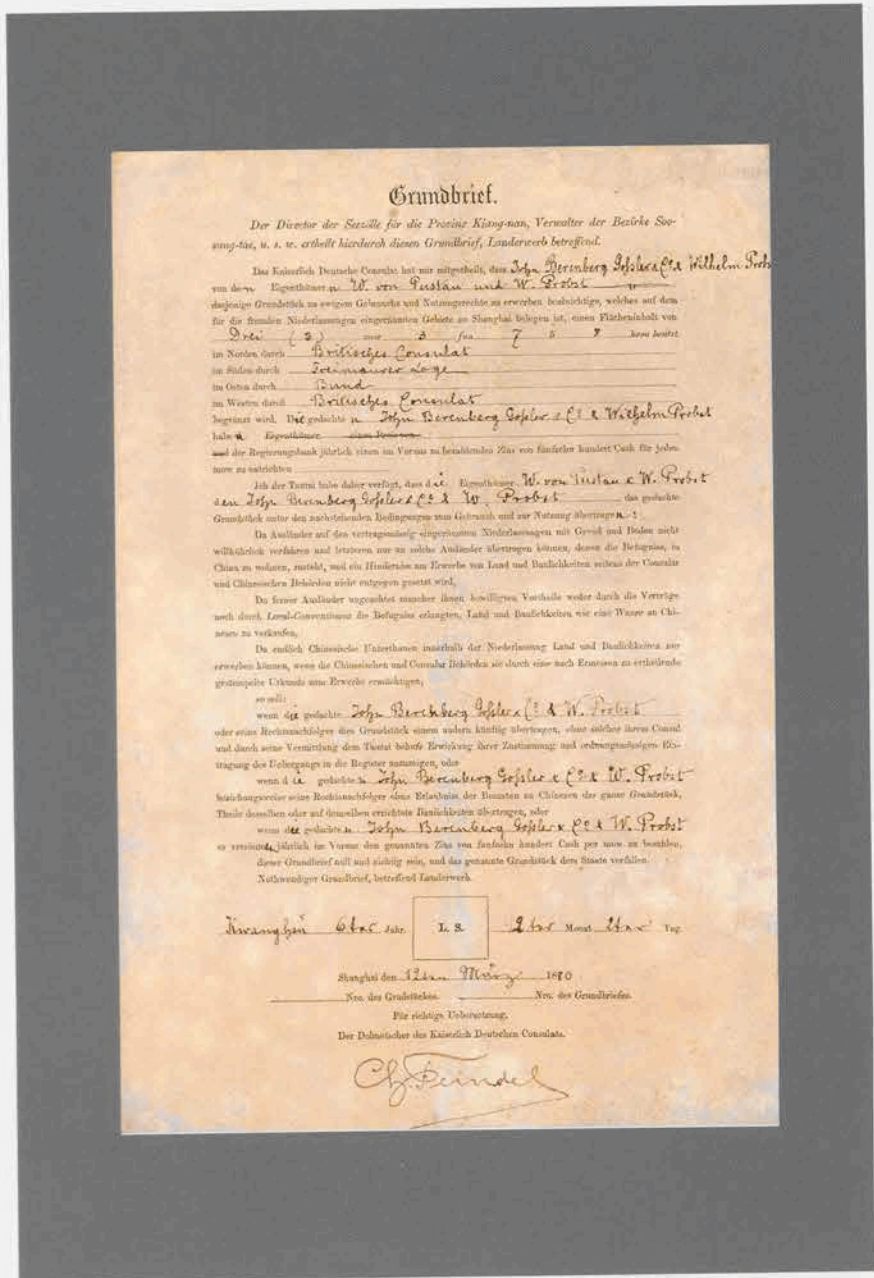 Grundbrief.
Der Director der Seezölle für die Provinz Kiang-nan, Verwalter der Bezirke Soo-
sung-tae, u. s. w. ertheilt hierdurch diesen Grundbrief, Landerwerb betreffend.
Das Kaiserlich Deutsche Consulat hat mir mitgetheilt, dass John Berenberg Gossler & Co. & Wilhelm Probst
von den Eigenthümern W. von Pustau und W. Probst
dasjenige Grundstück zu ewigem Gebrauchs und Nutzungsrechte zu erwerben beabsichtige, welches auf dem
für die fremden Niederlassungen eingeräumten Gebiete zu Shanghai belegen ist, einen Flächeninhalt von
Drei (3) mow 3 fun 7 5 8 besitzt
im Norden durch Britisches Consulat
im Süden durch Freimaurer Loge
im Osten durch Bund
im Westen durch Britisches Consulat
begränzt wird. Die gedachten John Berenberg Gossler & Co. & Wilhelm Probst
haben Eigenthümer
und der Regierungsbank jährlich einen im Voraus zu bezahlenden Zins von fünfzehn hundert Cash für jeden
mow zu entrichten
Ich der Tautai habe daher verfügt, dass die Eigenthümer W. von Pustau & W. Probst
den John Berenberg Gossler & Co. & W. Probst das gedachte
Grundstück unter den nachstehenden Bedingungen zum Gebrauch und zur Nutzung übertragen:
Da Ausländer auf den vertragsmässig eingeräumten Niederlassungen mit Grund und Boden nicht
willkührlich verfahren und letzteren nur an solche Ausländer übertragen können, denen die Befugniss, in
China zu wohnen, zusteht, und ein Hinderniss am Erwerbe von Land und Baulichkeiten seitens der Consular
und Chinesischen Behörden nicht entgegen gesetzt wird,
Da ferner Ausländer ungeachtet mancher ihnen bewilligten Vortheile weder durch die Verträge
noch durch Local-Conventionen die Befugniss erlangten, Land und Baulichkeiten wie eine Waare an Chi-
nesen zu verkaufen,
Da endlich Chinesische Unterthanen innerhalb der Niederlassung Land und Baulichkeiten nur
erwerben können, wenn die Chinesischen und Consular Behörden sie durch eine nach Ermessen zu ertheilende
gestempelte Urkunde zum Erwerbe ermächtigen,
so soll:
wenn die gedachte John Berenberg Gossler & Co. & W. Probst
oder seine Rechtsnachfolger dies Grundstück einem andern künftig übertragen, ohne solches ihrem Consul
und durch seine Vermittlung dem Tautai behufs Erwirkung ihrer Zustimmung und ordnungsmässigen Ein-
tragung des Uebergangs in die Register anzuzeigen, oder
wenn die gedachten John Berenberg Gossler & Co. & W. Probst
beziehungsweise seine Rechtsnachfolger ohne Erlaubniss der Beamten an Chinesen das ganze Grundstück,
Theile desselben oder auf demselben errichtete Baulichkeiten übertragen, oder
wenn die gedachten John Berenberg Gossler & Co. & W. Probst
es versäumen jährlich im Voraus den genannten Zins von fünfzehn hundert Cash per mow zu bezahlen,
dieser Grundbrief null und nichtig sein, und das genannte Grundstück dem Staate verfallen.
Nothwendiger Grundbrief, betreffend Landerwerb.
Kwanghsü 6ter Jahr. L. S. 2ter Monat 2ter Tag.
Shanghai den 12ten März 1880
Nro. des Grundstückes. Nro. des Grundbriefes.
Für richtige Uebersetzung.
Der Dolmetscher des Kaiserlich Deutschen Consulats.
Ch. Feindel